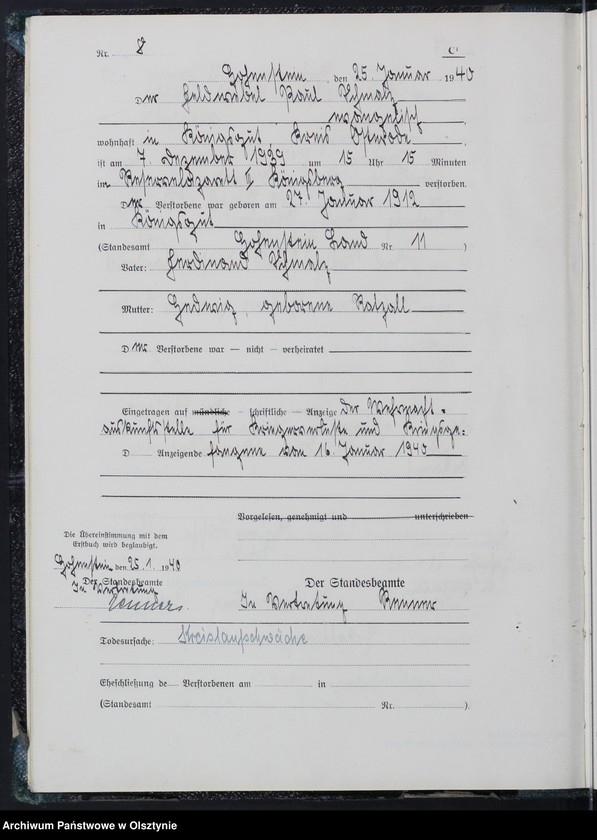 Nr. 8 C
Hohenstein, den 25. Januar 1940
Der Feldwebel Paul Schmalz
evangelisch
wohnhaft in Königsgut Kreis Osterode
ist am 7. Dezember 1939 um 15 Uhr 15 Minuten
im Reservelazarett II Königsberg verstorben.
Der Verstorbene war geboren am 27. Januar 1912
in Königsgut
(Standesamt Hohenstein Land Nr. 11)
Vater: Ferdinand Schmalz
Mutter: Hedwig, geborene Katzall
Der Verstorbene war — nicht — verheiratet
Eingetragen auf mündliche - schriftliche — Anzeige der Wehrmacht-
auskunftstelle für Kriegerverluste und Kriegsge-
D Anzeigende fangene vom 16. Januar 1940
Vorgelesen, genehmigt und unterschrieben
Die Übereinstimmung mit dem
Erstbuch wird beglaubigt.
Hohenstein den 25.1.1940
Der Standesbeamte
In Vertretung
Der Standesbeamte
In Vertretung
Todesursache: Kreislaufschwäche
Eheschließung de Verstorbenen am in
(Standesamt Nr. ).
Archiwum Państwowe w Olsztynie